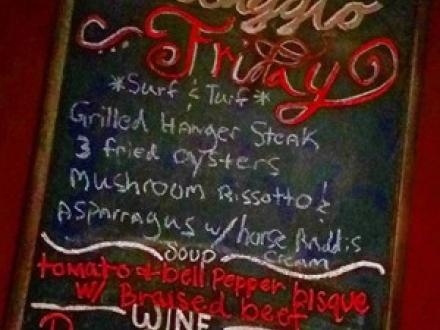 Friday
*Surf & Turf*
Grilled Hanger Steak
3 fried oysters
Mushroom Rissotto &
Asparragus w/ horse Raddis
cream
Soup
tomato + bell pepper bisque
w/ Braised beef
WINE